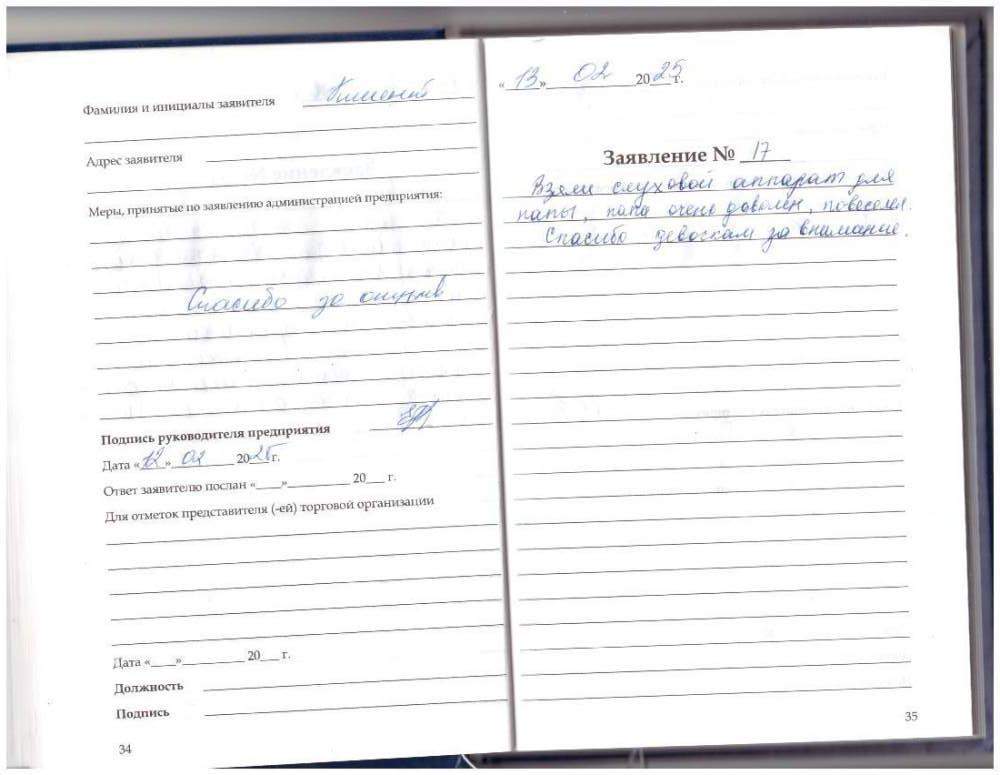 Фамилия и инициалы заявителя
Адрес заявителя
Меры, принятые по заявлению администрацией предприятия:
Спасибо за отзыв.
Подпись руководителя предприятия
Дата «12» 02 2025 г.
Ответ заявителю послан «___»__________ 20___ г.
Для отметок представителя (-ей) торговой организации
Дата «____»__________ 20___ г.
Должность
Подпись
34
«13» 02 2025 г.
Заявление № 17
Взяли слуховой аппарат для
папы, папа очень доволен, повеселел.
Спасибо девочкам за внимание.
35